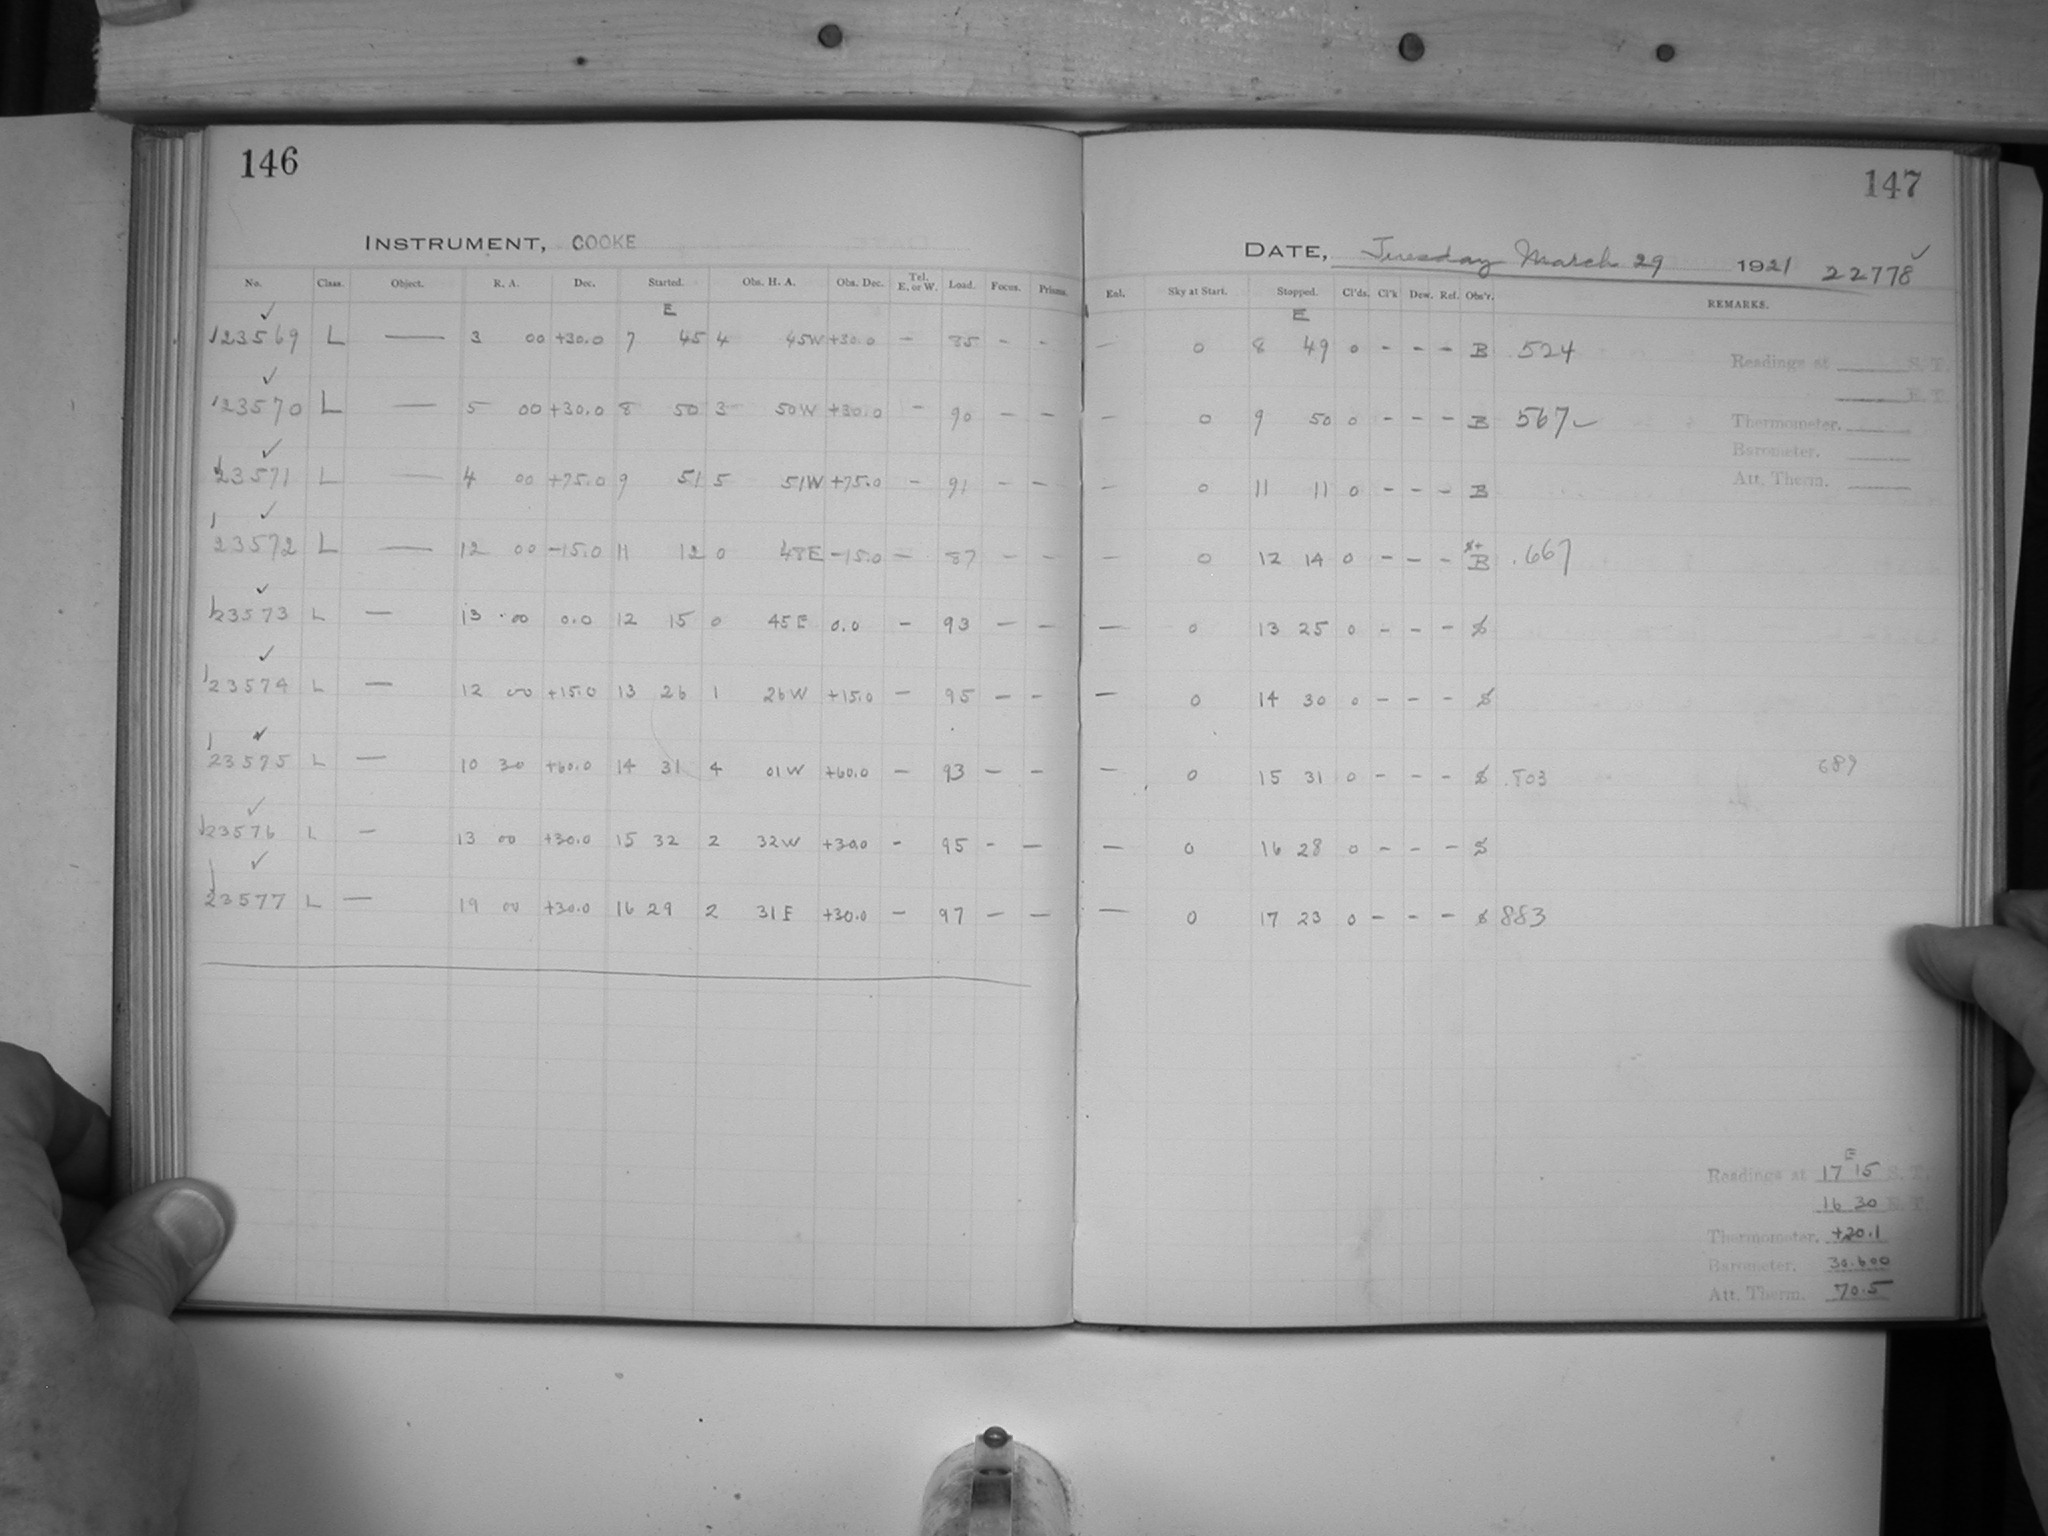 146
INSTRUMENT, COOKE
No. Class. Object. R. A. Dec. Started. Obs. H. A. Obs. Dec. Tel. E. or W. Load. Focus. Prisms.
E
23569 L — 3 00 +30.0 7 45 4 45W +30.0 — 85 - -
23570 L — 5 00 +30.0 8 50 3 50W +30.0 — 90 - -
23571 L — 4 00 +75.0 9 51 5 51W +75.0 - 91 - -
23572 L — 12 00 -15.0 11 12 0 48E -15.0 — 87 - -
23573 L — 13 00 0.0 12 15 0 45E 0.0 - 93 - -
23574 L — 12 00 +15.0 13 26 1 26W +15.0 - 95 - -
23575 L — 10 30 +60.0 14 31 4 01W +60.0 - 93 - -
23576 L — 13 00 +30.0 15 32 2 32W +30.0 - 95 - -
23577 L — 19 00 +30.0 16 29 2 31E +30.0 - 97 - -
147
DATE, Tuesday March 29 1921 22778 ✓
Enl. Sky at Start. Stopped. Cl'ds. Cl'k Dew. Ref. Obs'r. REMARKS.
E
— 0 8 49 0 - - - B .524
— 0 9 50 0 - - - B 567 ✓
— 0 11 11 0 - - - B
— 0 12 14 0 - - - B .667
— 0 13 25 0 - - - S
— 0 14 30 0 - - - S
— 0 15 31 0 - - - S .803 689
— 0 16 28 0 - - - S
— 0 17 23 0 - - - S 883
Readings at S. T.
E. T.
Thermometer.
Barometer.
Att. Therm.
E
Readings at 17 15 S. T.
16 30 E. T.
Thermometer. +20.1
Barometer. 30.600
Att. Therm. 70.5